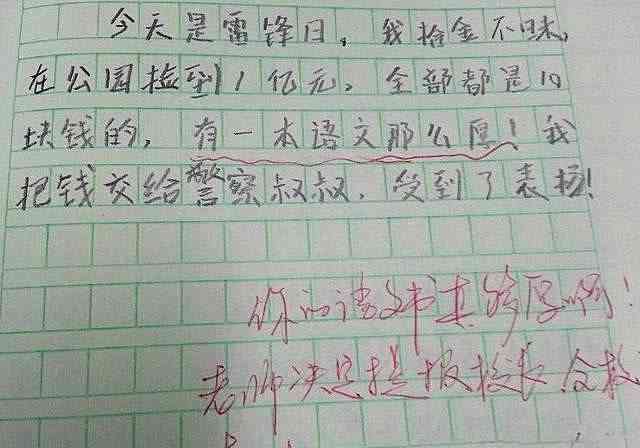 今天是雷锋日，我拾金不昧，
在公园捡到1亿元，全部都是10
块钱的，有一本语文那么厚！我
把钱交给警察叔叔，受到了表扬！
你的语文书真够厚啊！
老师决定提报校长全校